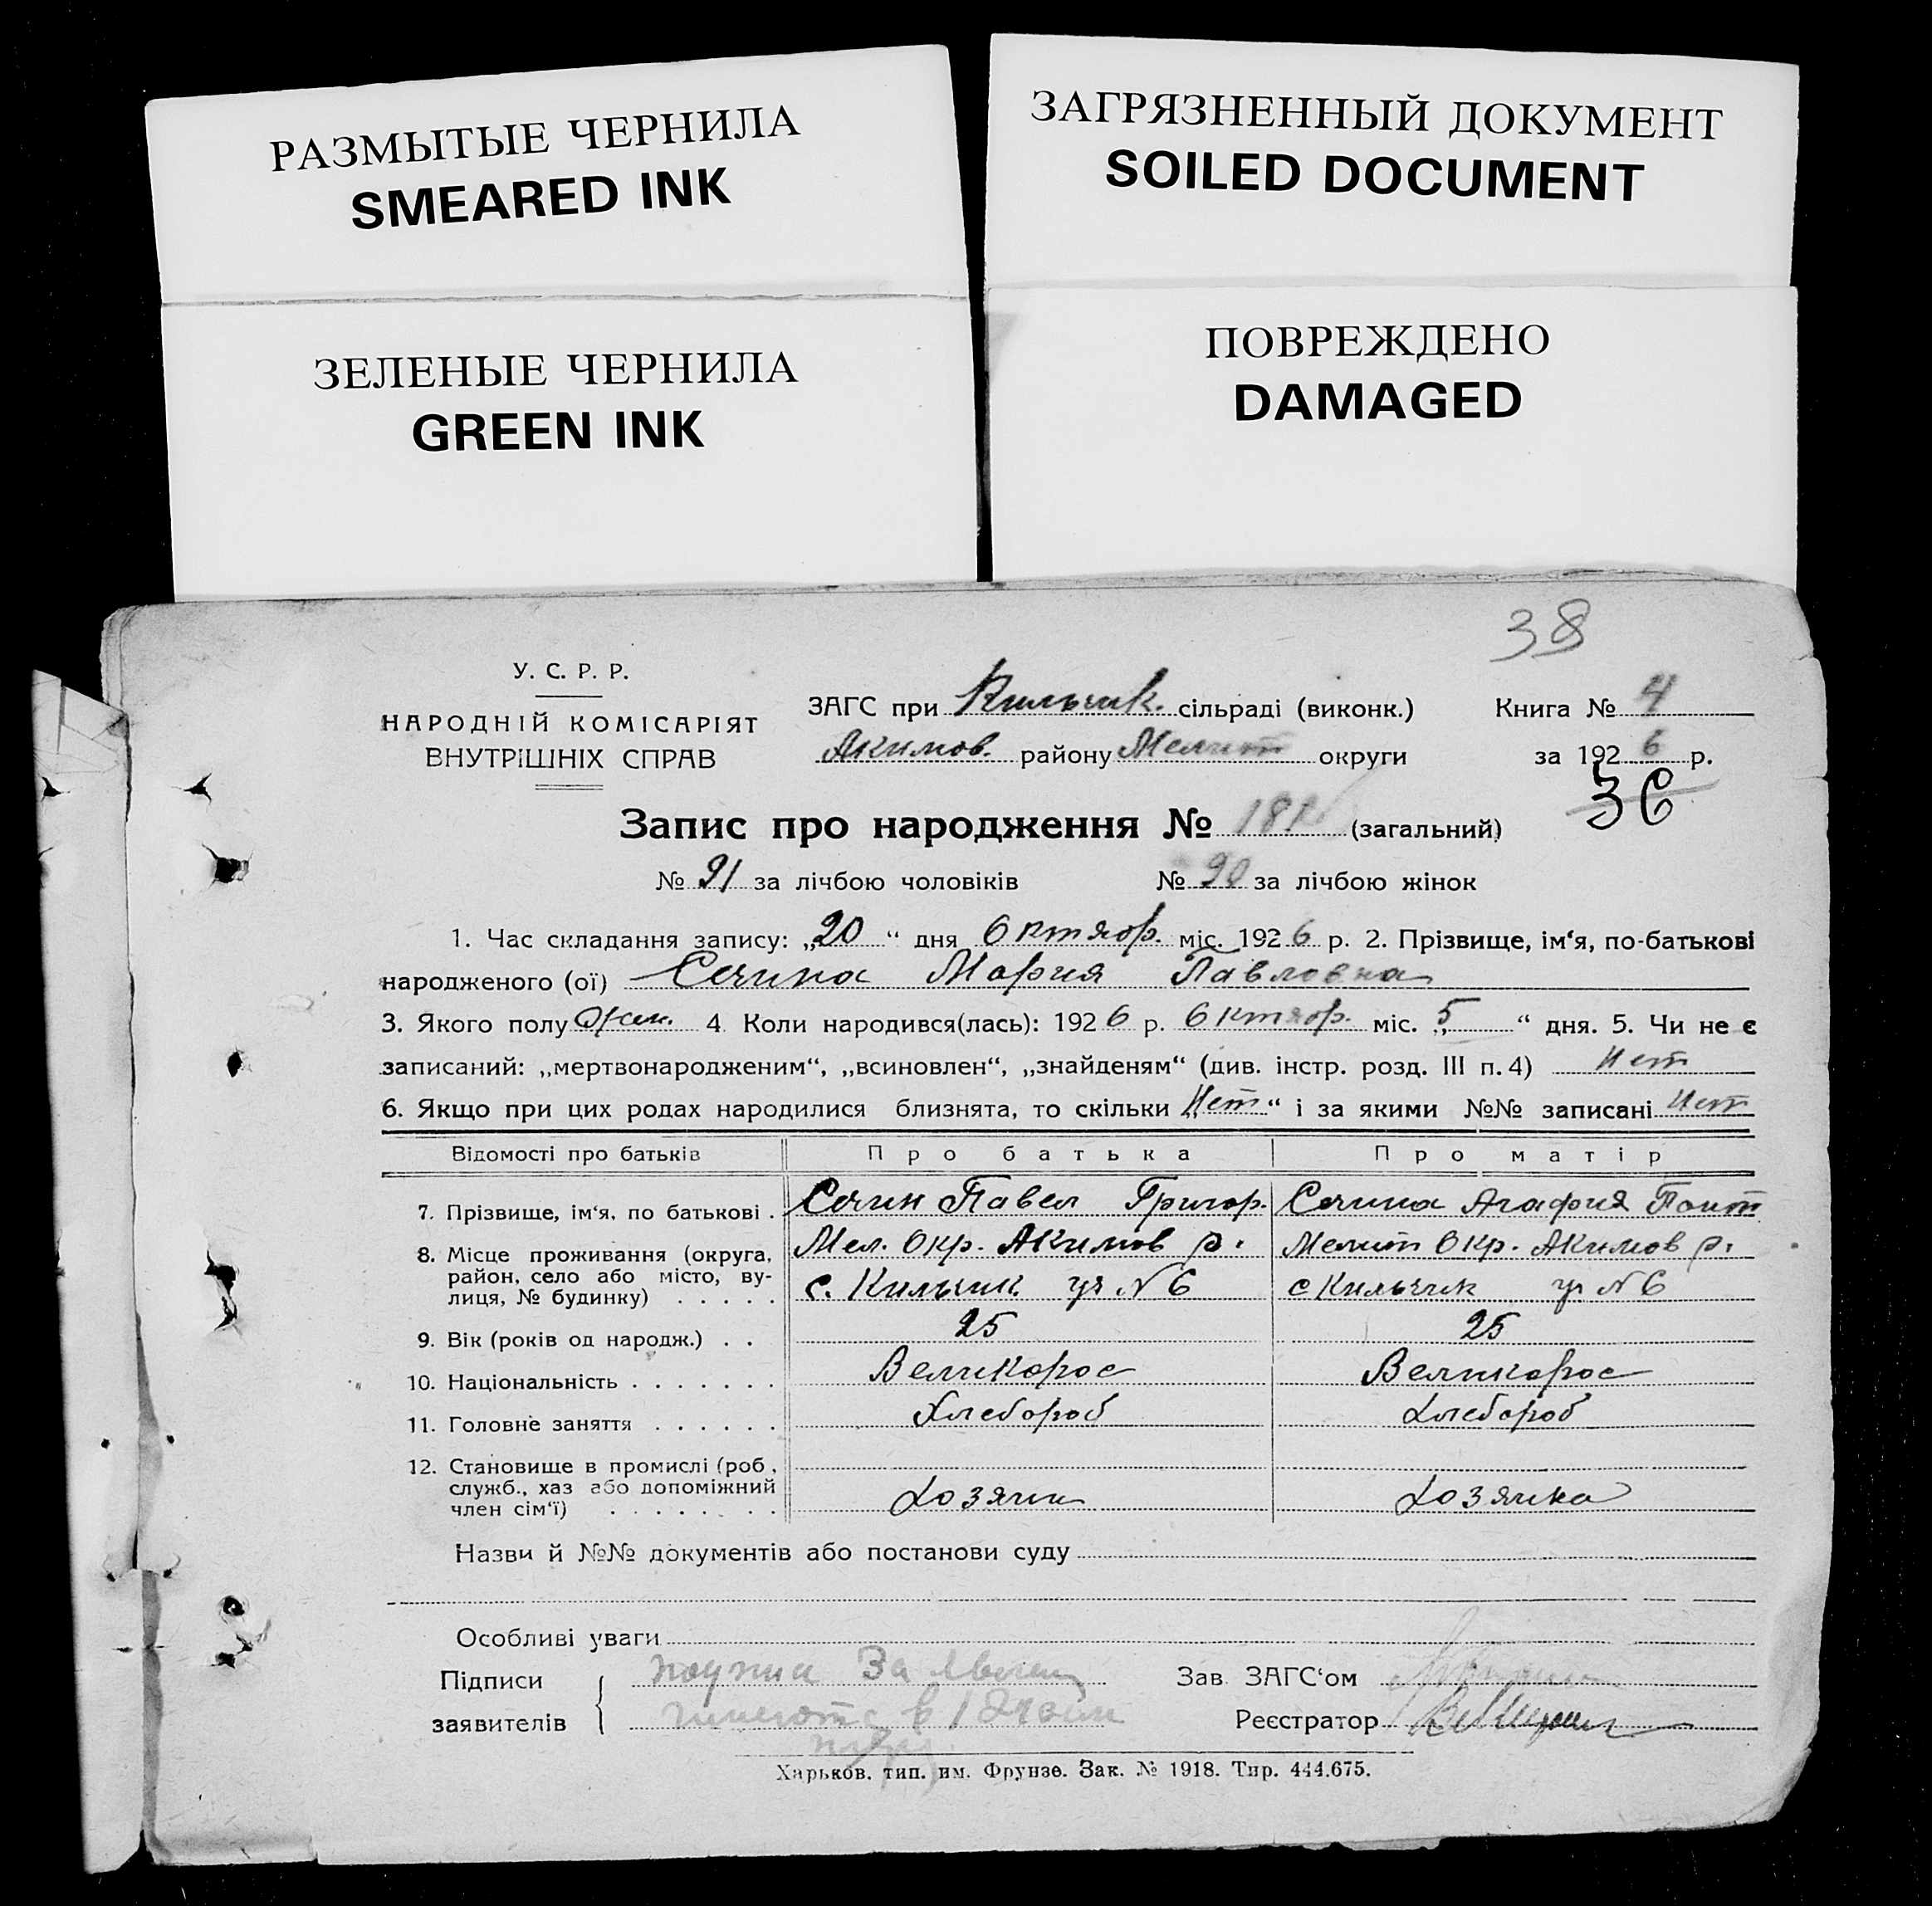 РАЗМЫТЫЕ ЧЕРНИЛА
SMEARED INK
ЗАГРЯЗНЕННЫЙ ДОКУМЕНТ
SOILED DOCUMENT
ЗЕЛЕНЫЕ ЧЕРНИЛА
GREEN INK
ПОВРЕЖДЕНО
DAMAGED
38
У. С. Р. Р.
НАРОДНІЙ КОМІСАРІЯТ
ВНУТРІШНІХ СПРАВ
ЗАГС при Кильчик. сільраді (виконк.) Книга № 4
Акимов. району Мелит округи за 1926 р.
36
Запис про народження № (загальний)
№ 91 за лічбою чоловіків № 90 за лічбою жінок
1. Час складання запису: „20“ дня Октябр. міс. 1926 р. 2. Прізвище, ім‘я, по-батькові
народженого (ої) Сечина Мария Павловна
3. Якого полу Жен. 4 Коли народився(лась): 1926 р. Октябр. міс. „5“ дня. 5. Чи не є
записаний: „мертвонародженим“, „всиновлен“, „знайденям“ (див. інстр. розд. III п. 4) Нет
6. Якщо при цих родах народилися близнята, то скільки „Нет“ і за якими №№ записані Нет
Відомості про батьків Про батька Про матір
7. Прізвище, ім‘я, по батькові . Сечин Павел Григор. Сечина Агафия
8. Місце проживання (округа, Мел. Окр. Акимов р. Мелит Окр. Акимов р.
район, село або місто, ву-
лиця, № будинку) . . . . . с. Кильчик уч N 6 с Кильчик уч N 6
9. Вік (років од народж.) . . 25 25
10. Національність . . . . . . . Великорос Великорос
11. Головне заняття . . . . . . Хлебороб Хлебороб
12. Становище в промислі (роб.,
служб., хаз або допоміжний
член сім‘ї) . . . . . . . Хозяин Хозяйка
Назви й №№ документів або постанови суду
Особливі уваги
Підписи
заявителів
Зав. ЗАГС‘ом
Реєстратор
Харьков, тип. им. Фрунзе. Зак. № 1918. Тир. 444.675.